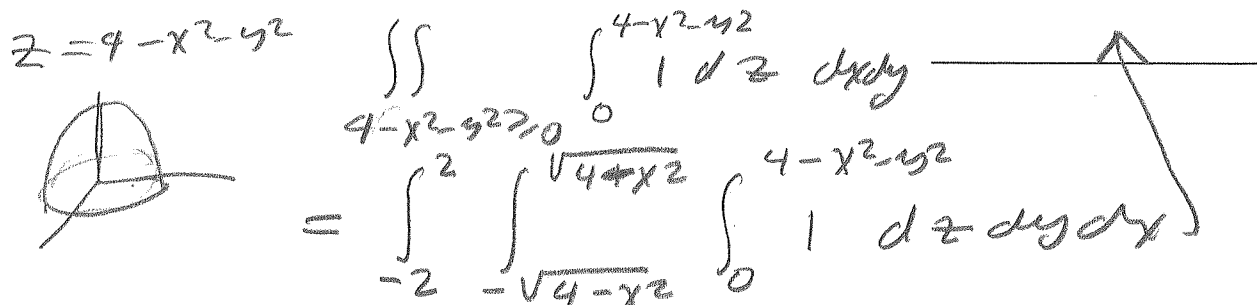 z = 4 - x² - y²
∬_{4-x²-y² ≥ 0} ∫_0^{4-x²-y²} 1 dz dxdy
= ∫_{-2}^{2} ∫_{-√(4-x²)}^{√(4-x²)} ∫_0^{4-x²-y²} 1 dz dy dx